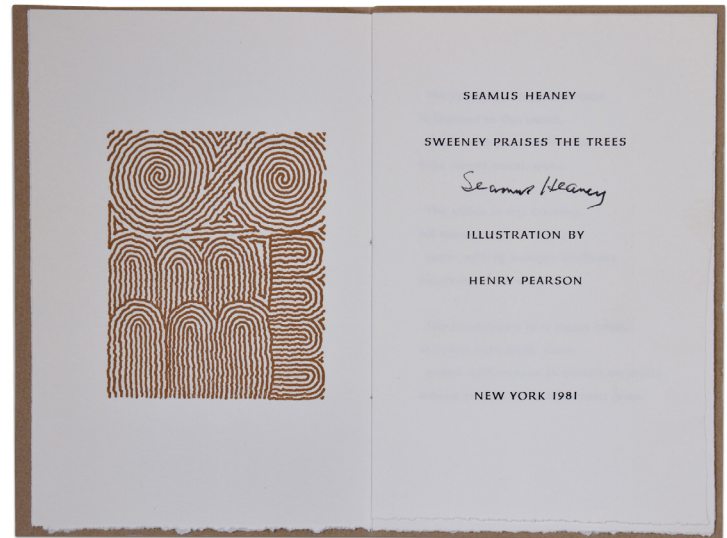 SEAMUS HEANEY
SWEENEY PRAISES THE TREES
Seamus Heaney
ILLUSTRATION BY
HENRY PEARSON
NEW YORK 1981